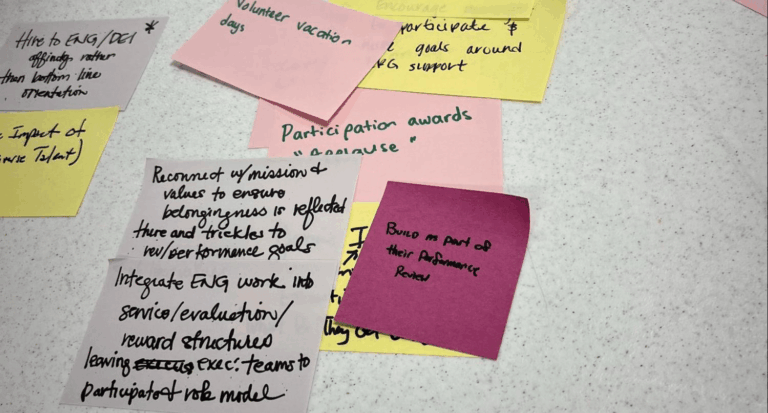 Hire to ENG/DEI *
affinity rather
than bottom line
orientation
Impact of
Talent)
Volunteer vacation
days
Encourage
participate &
goals around
support
Participation awards
"Applause"
Reconnect w/mission &
values to ensure
belongingness is reflected
there and trickles to
rev/performance goals
Integrate ENG work into
service/evaluation/
reward structures
leaving exec. teams to
participate & role model
Build in part of
their performance
Review
They Get